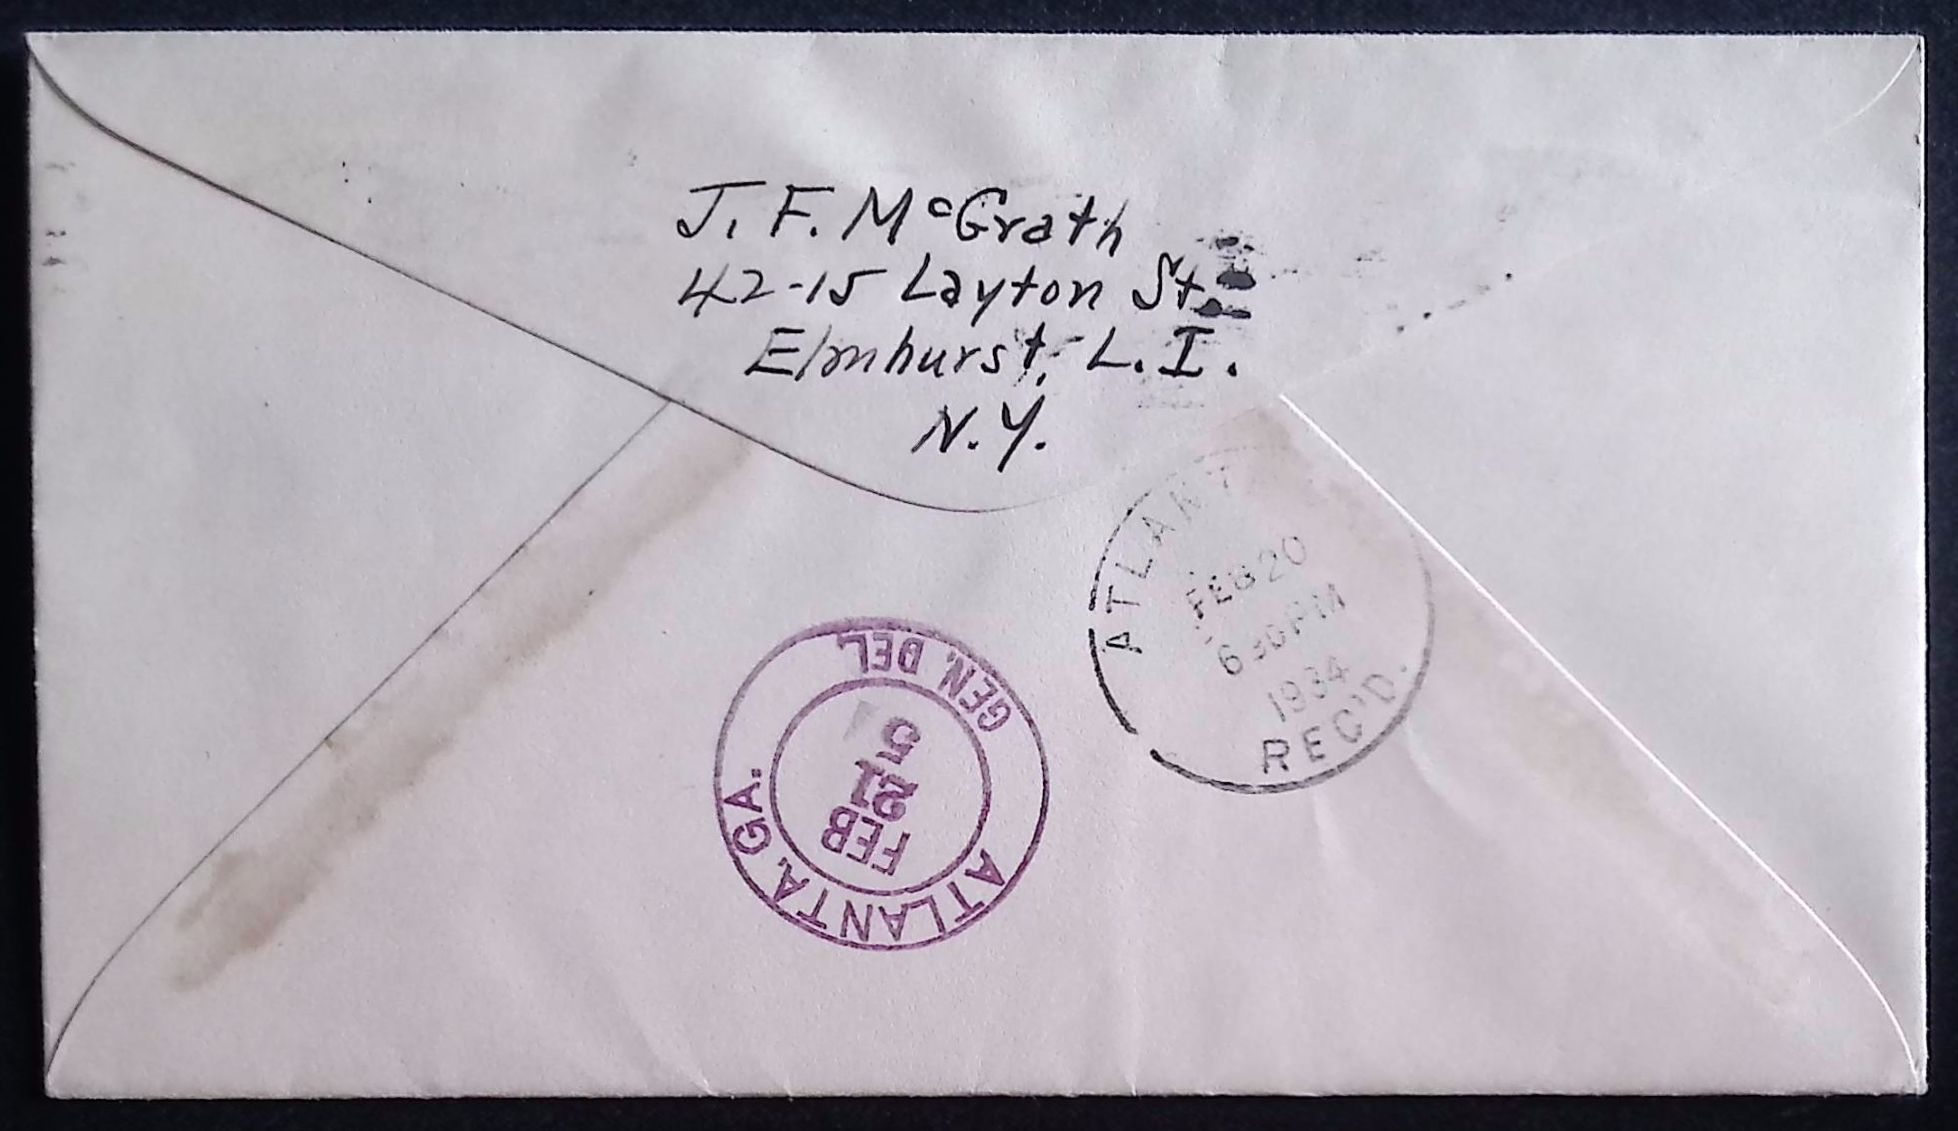 J. F. McGrath
42-15 Layton St.
Elmhurst, L. I.
N.Y.
ATLANT
FEB 20
6 30 PM
1934
REC'D.
GEN. DEL
ATLANTA, GA.
FEB
21
5